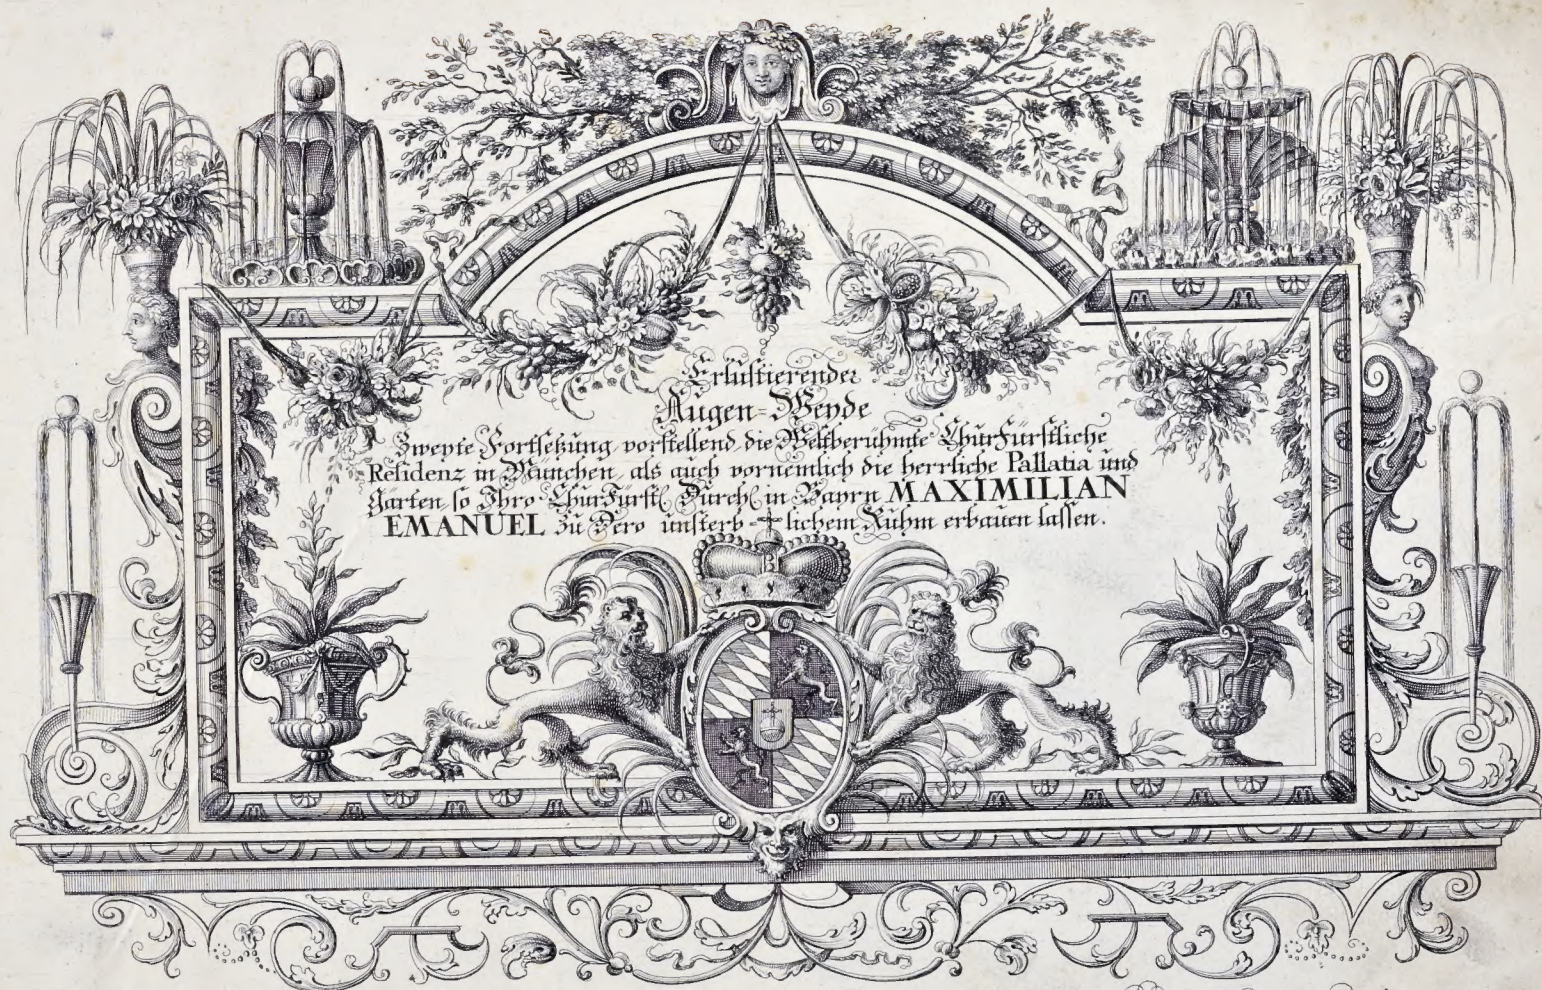 Erlustierender
Augen=Weyde
Zweyte Fortsetzung vorstellend die Weltberühmte ChurFürstliche
Residenz in München, als auch vornemlich die herrliche Pallatia und
Garten, so Ihro ChurFürstl. Durchl. in Bayrn MAXIMILIAN
EMANUEL zu Dero unsterb=lichem Ruhm erbauen lassen.